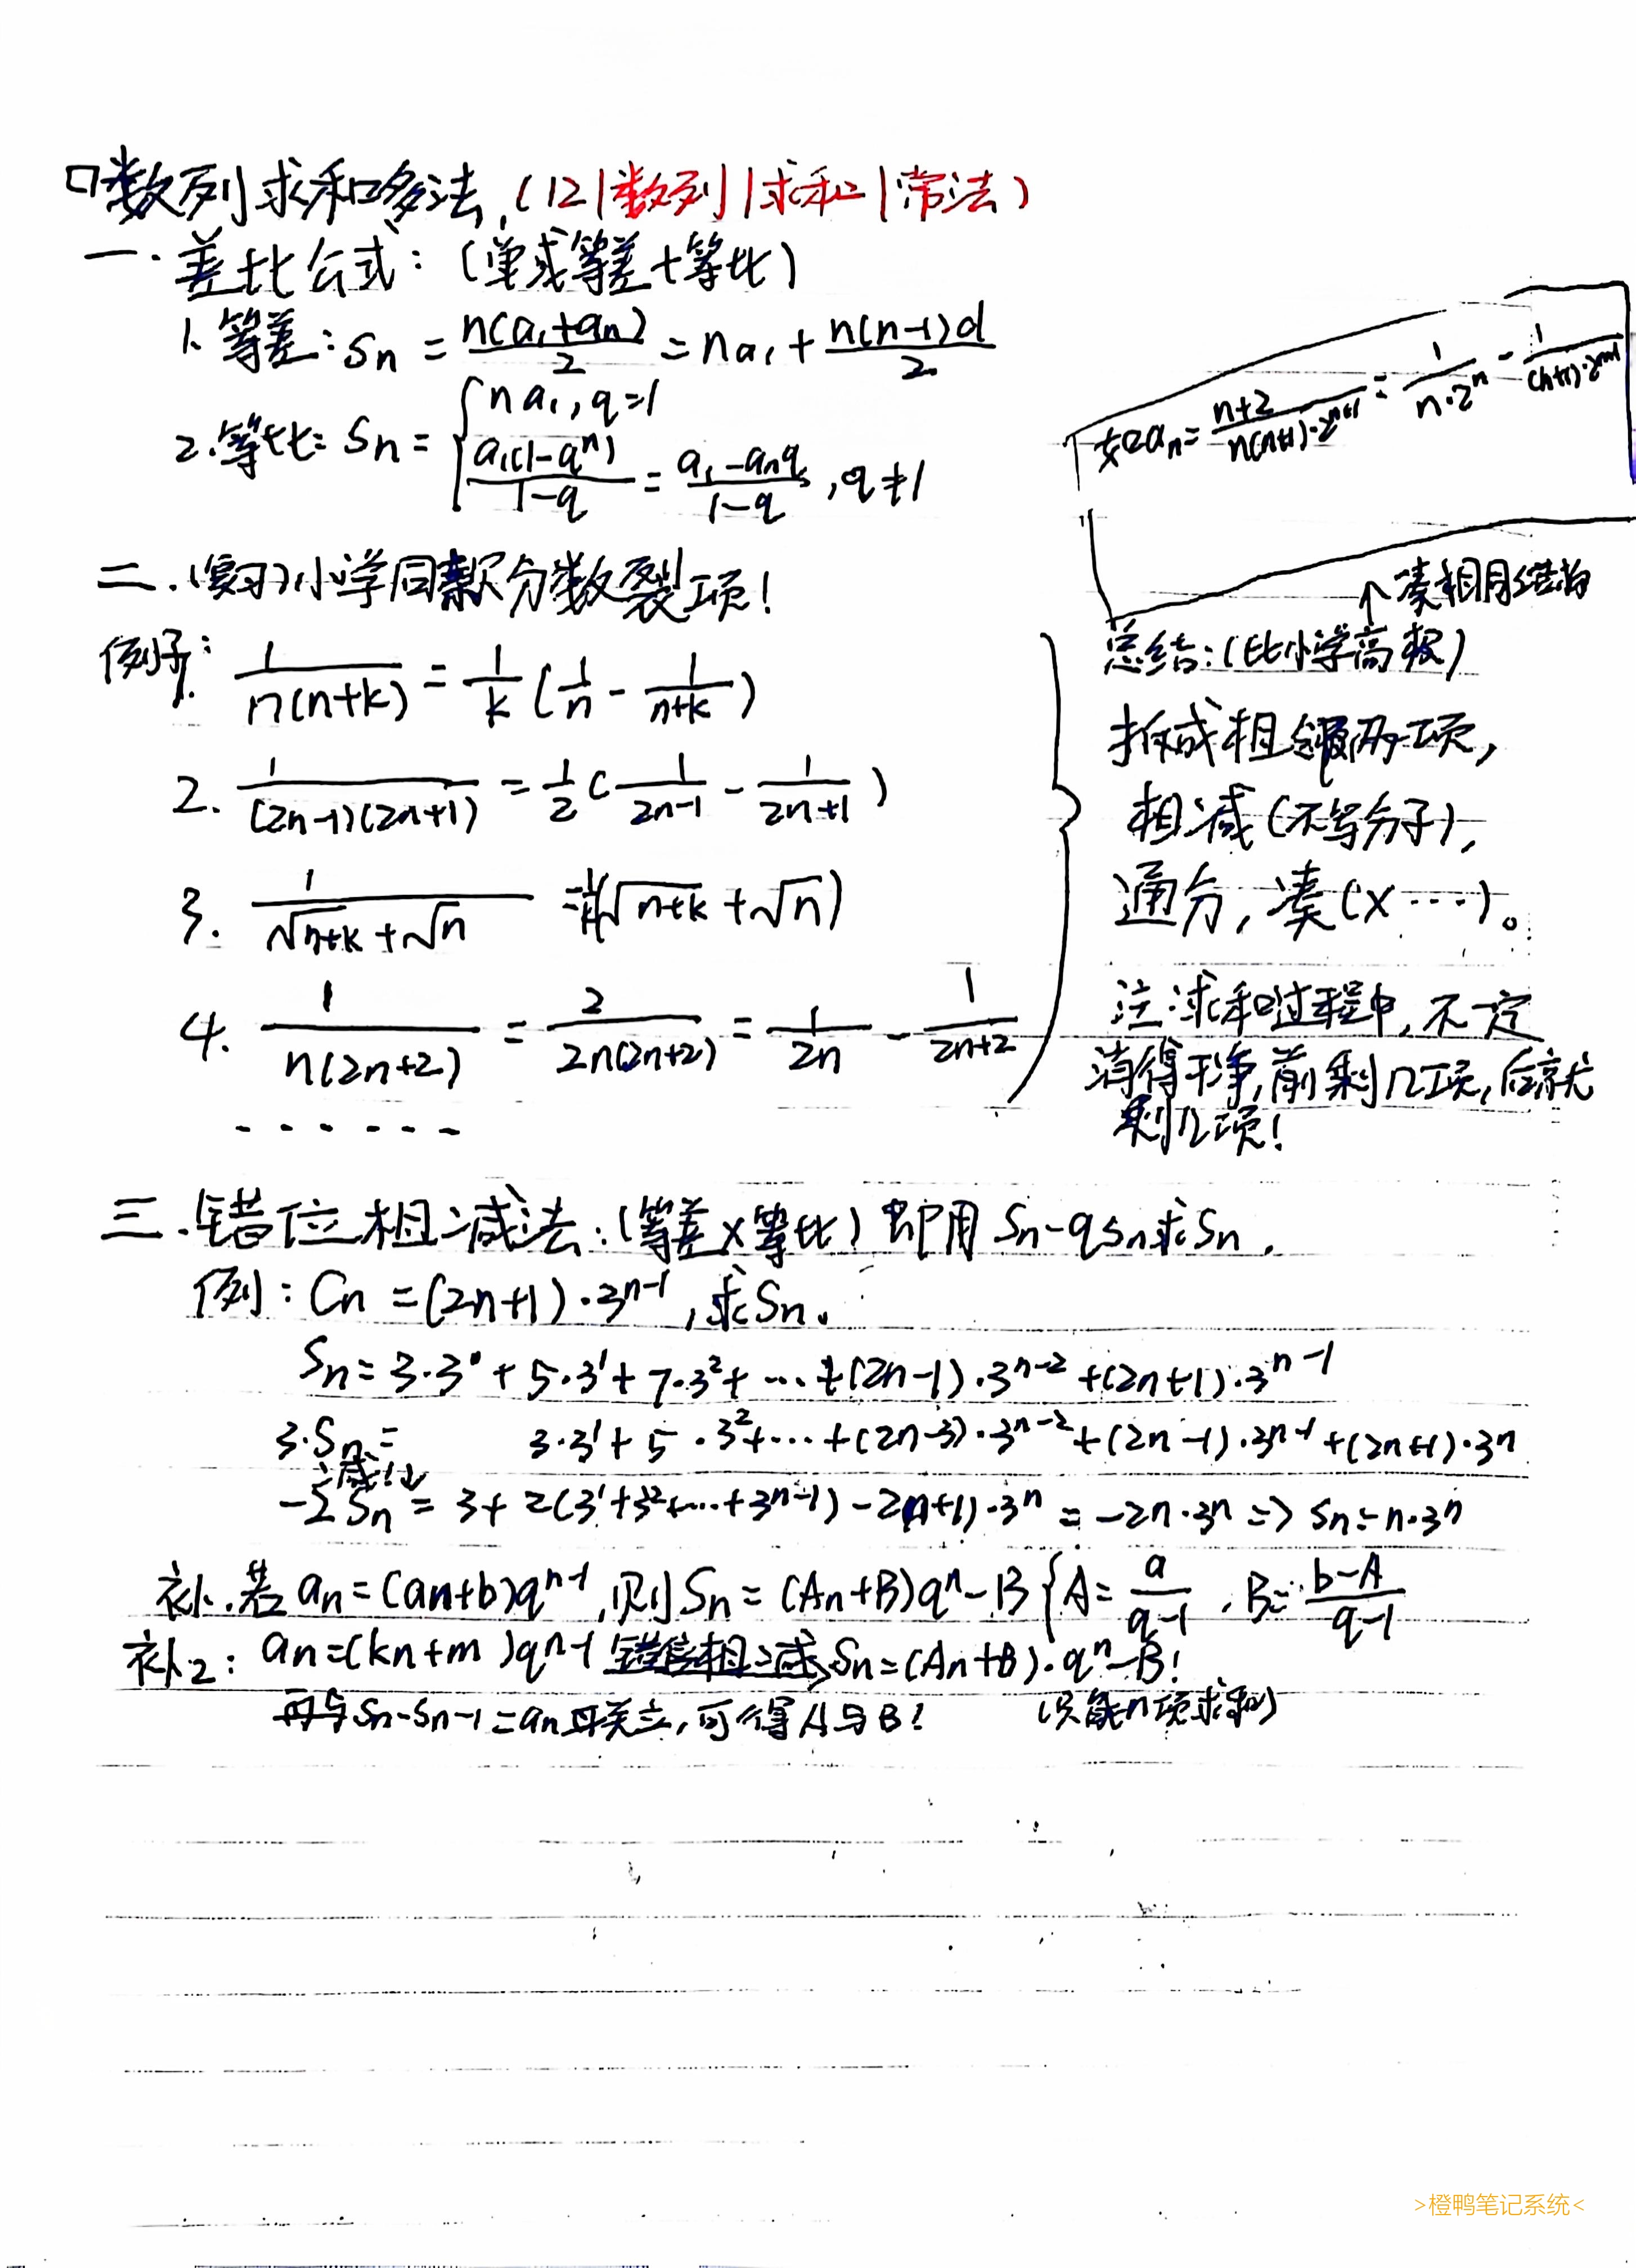 口数列求和多法 (12|数列|求和|常法)
一.差比公式:(单或等差+等比)
1.等差:Sn = n(a₁+an)/2 = na₁ + n(n-1)d/2
2.等比:Sn = { na₁, q=1
a₁(1-qⁿ)/(1-q) = (a₁-anq)/(1-q), q≠1
如an = (n+2)/(n(n+1)·2ⁿ⁺¹) = 1/(n·2ⁿ) - 1/((n+1)·2ⁿ⁺¹)
↑凑相同结构
二.(复习)小学同款分数裂项!
例子:
1. 1/(n(n+k)) = 1/k (1/n - 1/(n+k))
2. 1/((2n-1)(2n+1)) = 1/2 (1/(2n-1) - 1/(2n+1))
3. 1/(√(n+k)+√n) = 1/k(√(n+k)+√n)
4. 1/(n(2n+2)) = 2/(2n(2n+2)) = 1/2n - 1/(2n+2)
······
总结:(比小学高级)
拆成相邻两项,
相减(不写分子),
通分,凑(×····)。
注:求和过程中,不一定
消得干净,前剩几项,后就
剩几项!
三.错位相减法:(等差×等比) 即用Sn-qSn求Sn.
例:Cn=(2n+1)·3ⁿ⁻¹,求Sn。
Sn=3·3⁰+5·3¹+7·3²+…+(2n-1)·3ⁿ⁻²+(2n+1)·3ⁿ⁻¹
3·Sn= 3·3¹+5·3²+…+(2n-3)·3ⁿ⁻²+(2n-1)·3ⁿ⁻¹+(2n+1)·3ⁿ
减!↓
-2Sn=3+2(3¹+3²+…+3ⁿ⁻¹)-(2n+1)·3ⁿ=-2n·3ⁿ=>Sn=n·3ⁿ
补.若an=(an+b)qⁿ⁻¹,则Sn=(An+B)qⁿ-B{A=a/(q-1),B=(b-A)/(q-1)
补2:an=(kn+m)qⁿ⁻¹错位相减Sn=(An+B)·qⁿ-B!
再与Sn-Sn-1=an联立,可得A与B!
(只能n项求和)
>橙鸭笔记系统<